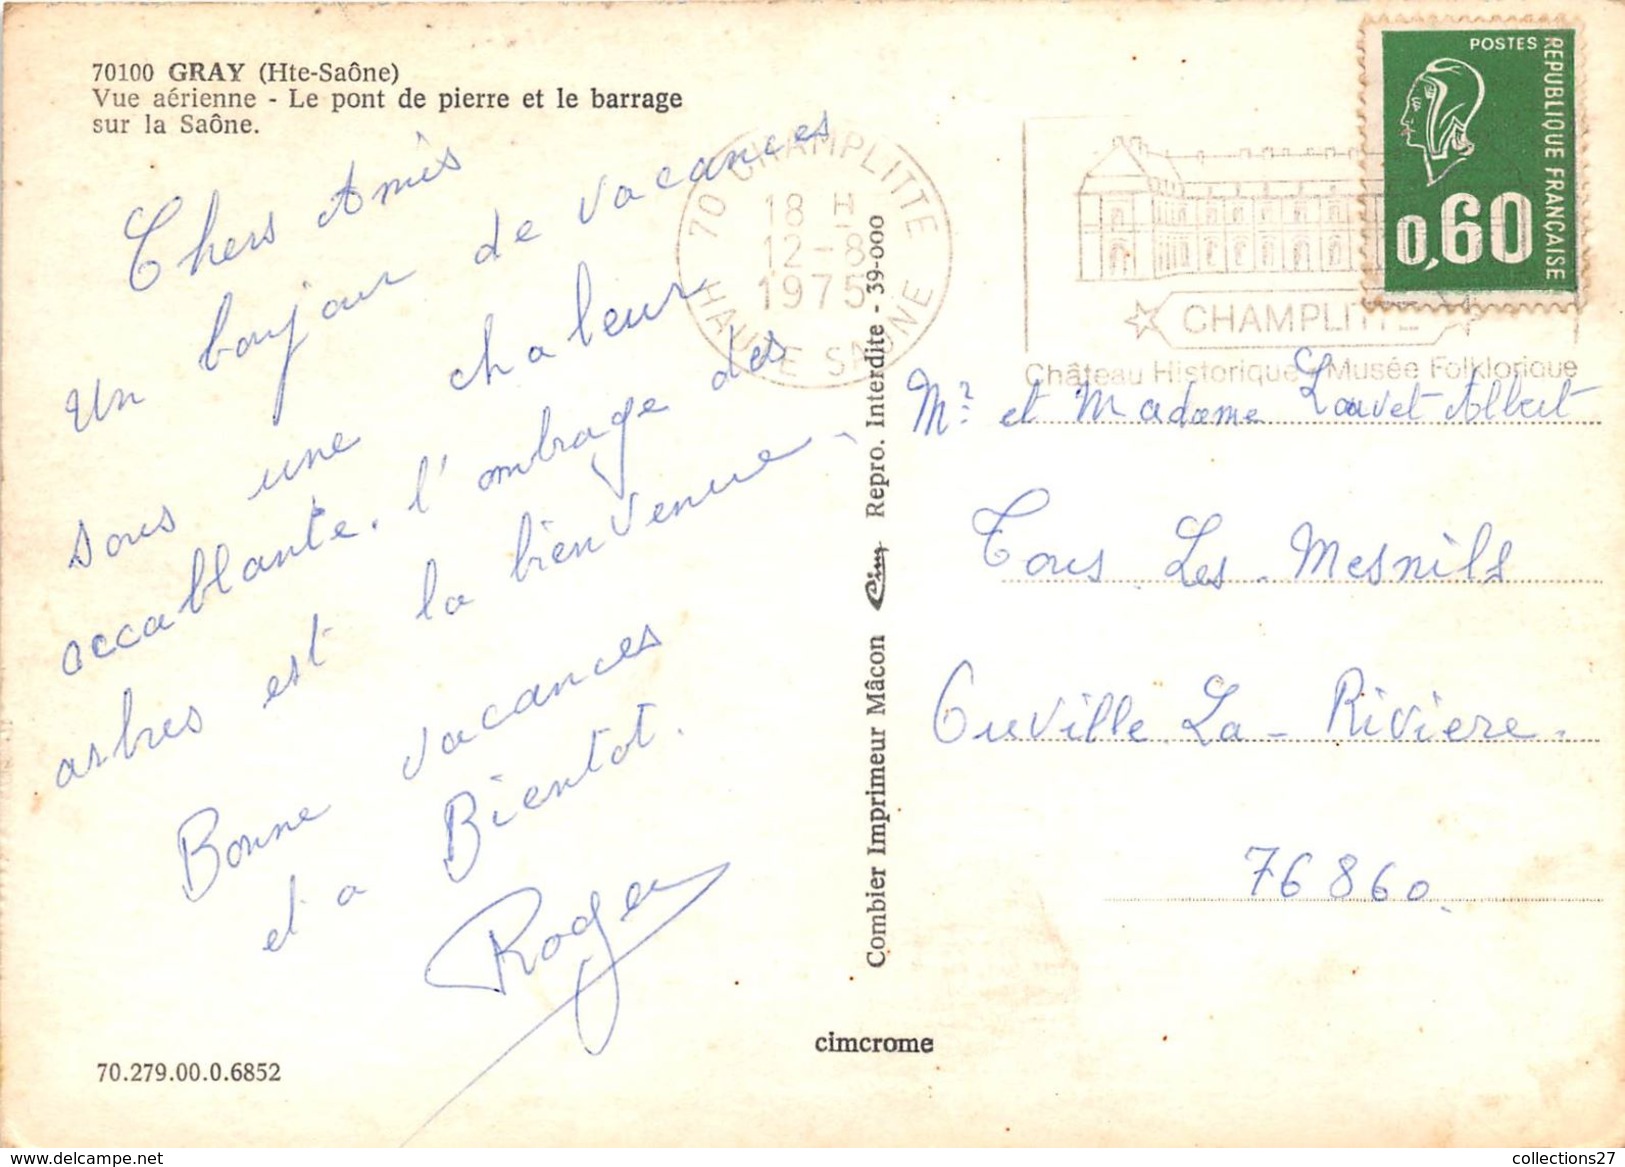 70100 GRAY (Hte-Saône)
Vue aérienne - Le pont de pierre et le barrage
sur la Saône.
Chers Amis
un bonjour de vacances
sous une chaleur
accablante. l'ombrage des
arbres est la bienvenue.
Bonne vacances
et a Bientot.
Roger
70.279.00.0.6852
cimcrome
Combier Imprimeur Mâcon Cim Repro. Interdite - 39-000
70 CHAMPLITTE
18 H
12-8
1975
HAUTE SAONE
CHAMPLITTE
Château Historique - Musée Folklorique
POSTES
REPUBLIQUE FRANÇAISE
0,60
Mr et Madame Louvet Albert
Tous Les Mesnils
Ouville La Riviere.
76860.
collections27